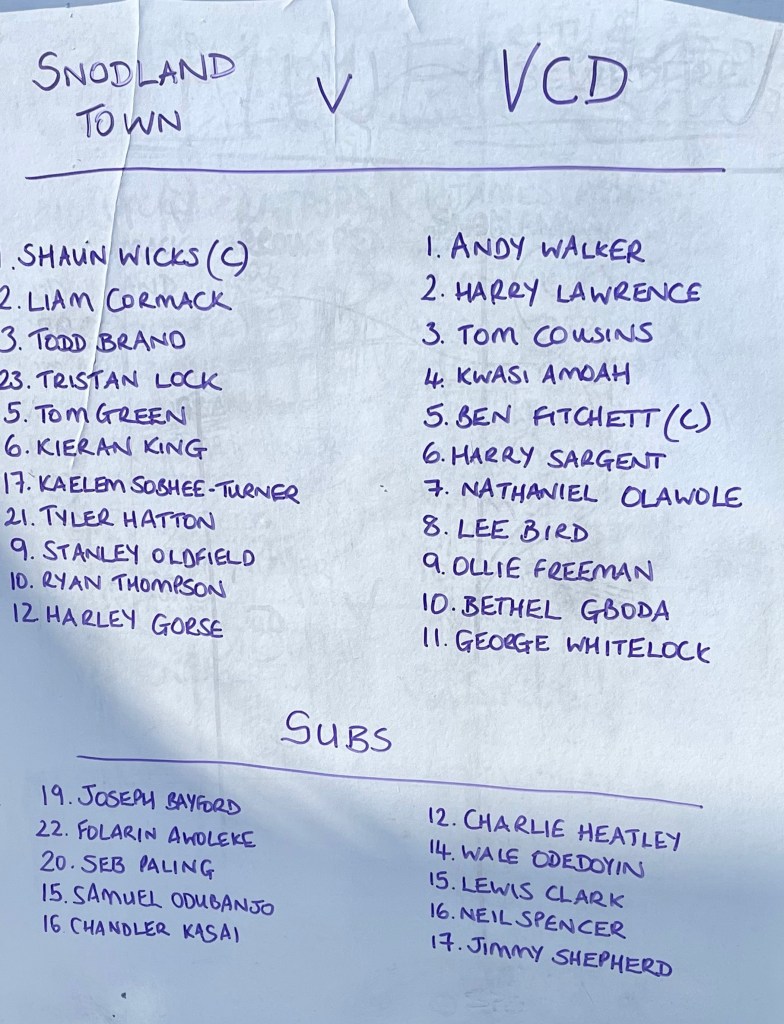 SNODLAND TOWN V VCD
1. SHAUN WICKS (C)
2. LIAM CORMACK
3. TODD BRAND
23. TRISTAN LOCK
5. TOM GREEN
6. KIERAN KING
17. KAELEM SOBHEE-TURNER
21. TYLER HATTON
9. STANLEY OLDFIELD
10. RYAN THOMPSON
12 HARLEY GORSE
1. ANDY WALKER
2. HARRY LAWRENCE
3. TOM COUSINS
4. KWASI AMOAH
5. BEN FITCHETT (C)
6. HARRY SARGENT
7. NATHANIEL OLAWOLE
8. LEE BIRD
9. OLLIE FREEMAN
10. BETHEL GBODA
11. GEORGE WHITELOCK
SUBS
19. JOSEPH BAYFORD
22. FOLARIN AWOLEKE
20. SEB PALING
15. SAMUEL ODUBANJO
16 CHANDLER KASAI
12. CHARLIE HEATLEY
14. WALE ODEDOYIN
15. LEWIS CLARK
16. NEIL SPENCER
17. JIMMY SHEPHERD